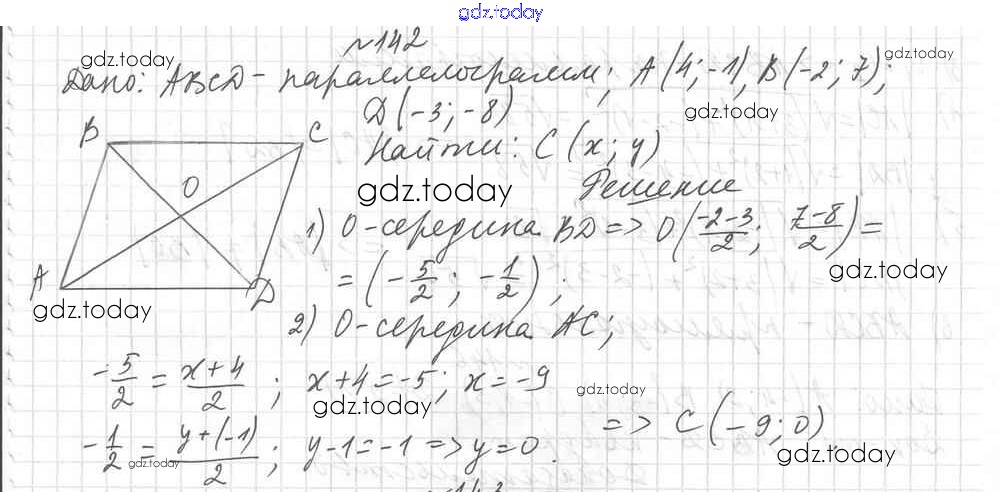 gdz.today
№142
gdz.today
gdz.today
Дано: ABCD - параллелограмм; A(4;-1), B(-2;7);
gdz.today
D(-3;-8)
Найти: C(x;y)
B C
O
A D
gdz.today
Решение
1) O-середина BD => O((-2-3)/2; (7-8)/2) =
gdz.today
= (-5/2; -1/2);
gdz.today
2) O-середина AC;
-5/2 = (x+4)/2; x+4=-5; x=-9
gdz.today
gdz.today
-1/2 = (y+(-1))/2; y-1=-1 => y=0. => C(-9;0).
gdz.today
gdz.today
№143